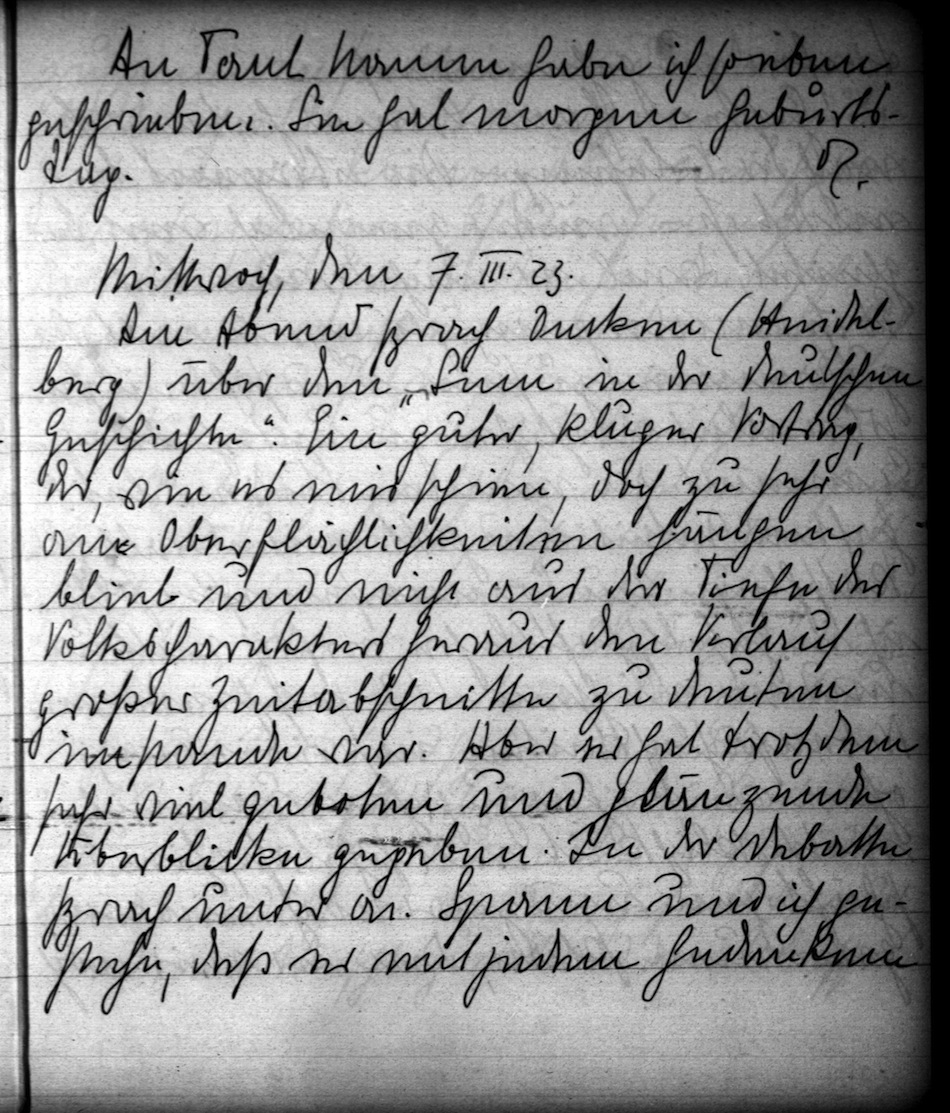 An Paul Hamm habe ich soeben
geschrieben. Sie hat morgen Geburts-
tag.
Mittwoch, den 7. III. 23.
Am Abend sprach Onken (Heidel-
berg) über den „Sinn in der deutschen
Geschichte“. Ein guter, kluger Vortrag,
der, wie es mir schien, doch zu sehr
an Oberflächlichkeiten hängen
blieb und nicht aus der Tiefe des
Volkscharakters heraus den Verlauf
großer Zeitabschnitte zu deuten
imstande war. Aber er hat trotzdem
sehr viel geboten und glänzende
Überblicke gegeben. In der Debatte
sprach unter a. Spann und ich ge-
stehe, daß er mit jedem Gedanken